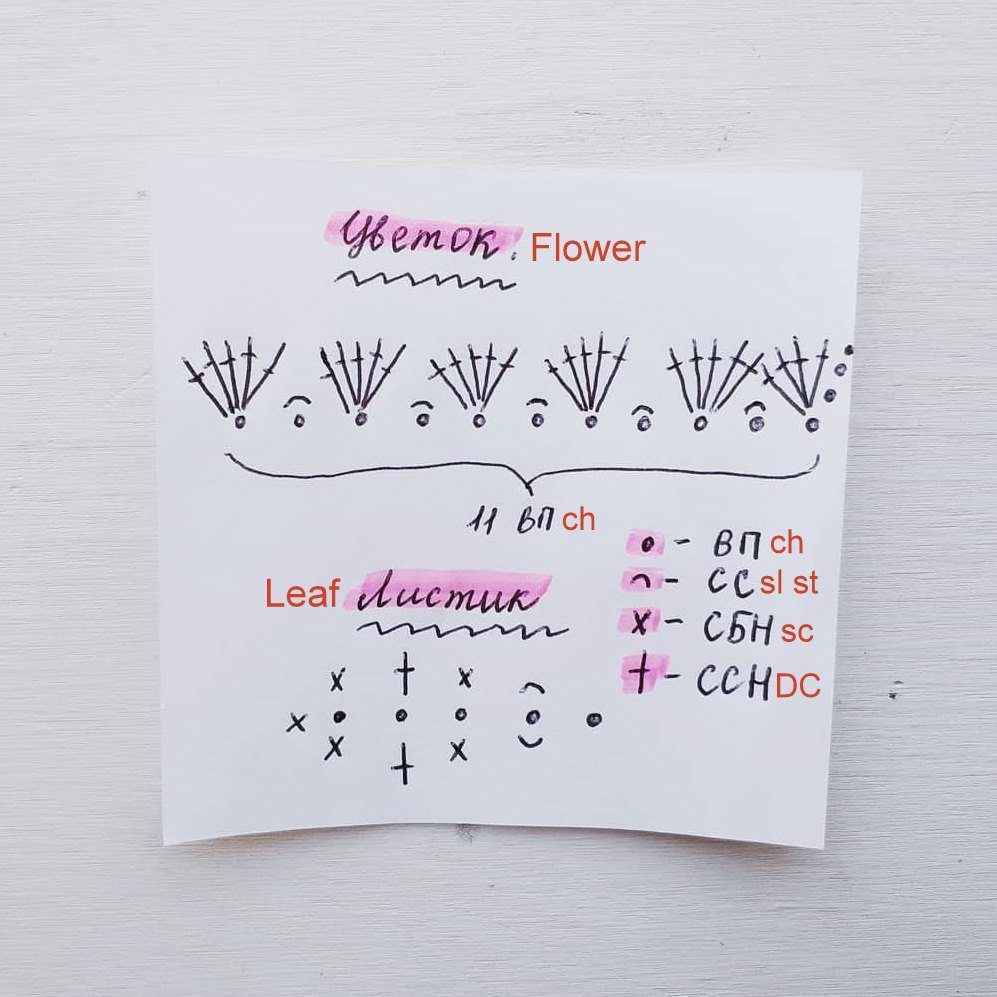 Цветок. Flower
11 ВП ch
• - ВП ch
⌢ - СС sl st
x - СБН sc
† - ССН DC
Leaf Листик